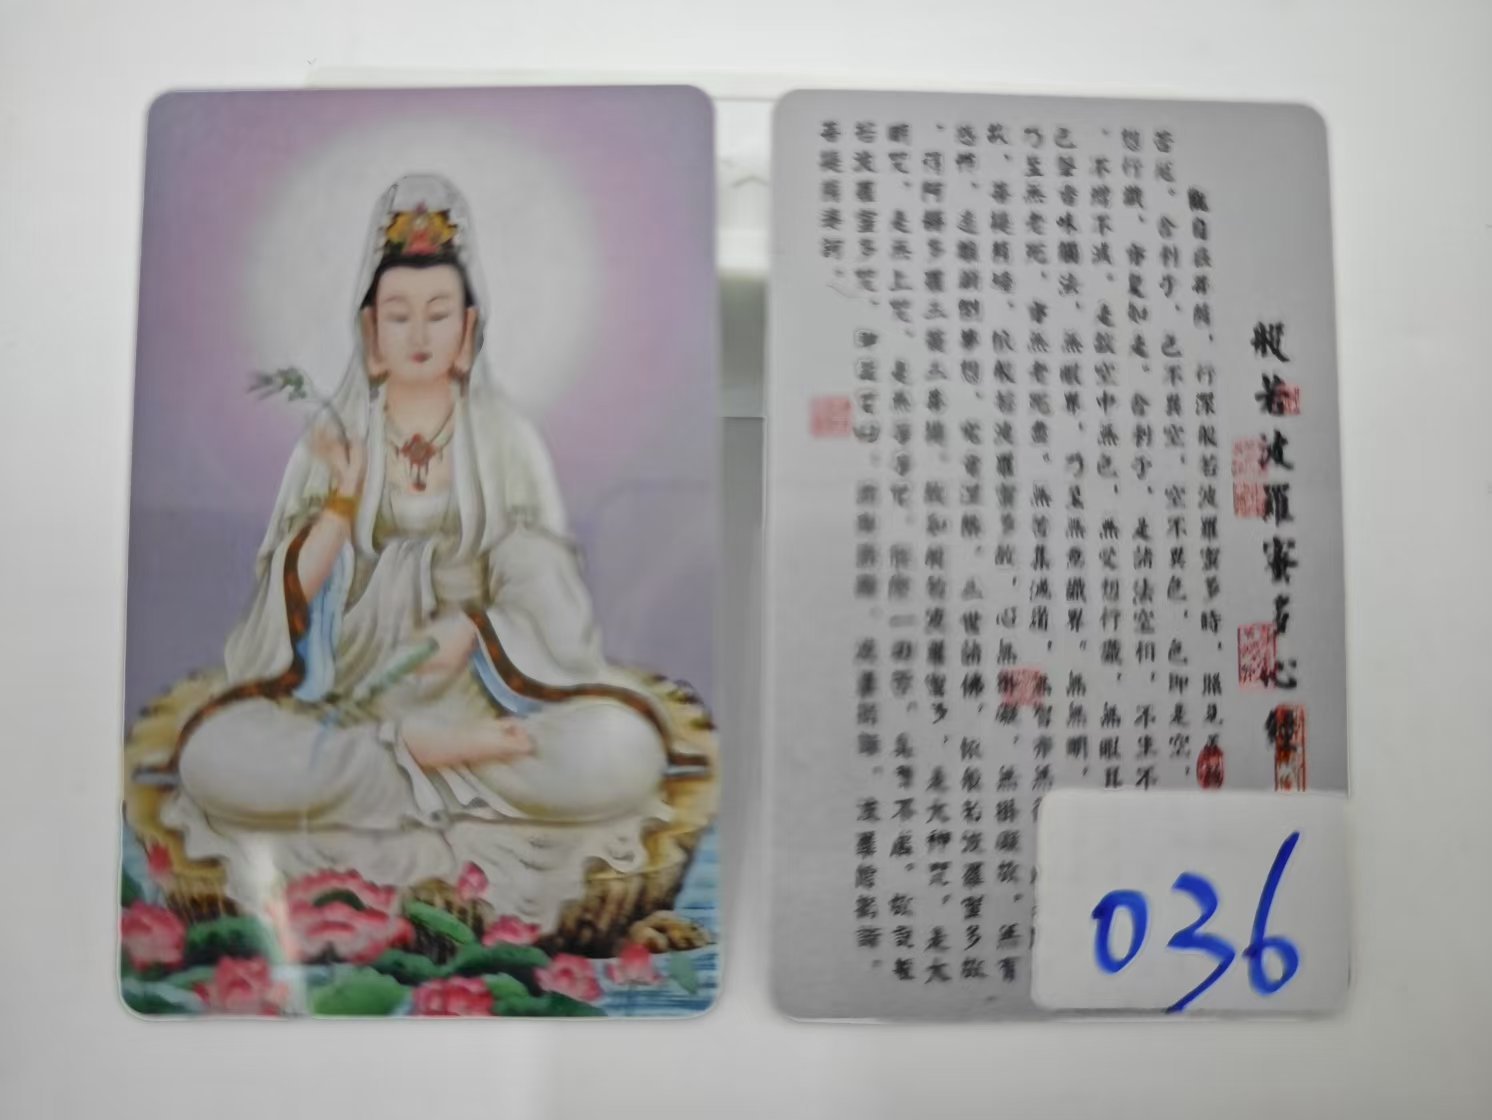 般若波羅蜜多心經
觀自在菩薩，行深般若波羅蜜多時，照見五蘊
苦厄。舍利子，色不異空，空不異色，色即是空，
想行識，亦復如是。舍利子，是諸法空相，不生不
、不增不減。是故空中無色，無受想行識，無眼耳
色聲香味觸法，無眼界，乃至無意識界。無無明，
乃至無老死，亦無老死盡。無苦集滅道，無智亦無得
故，菩提薩埵，依般若波羅蜜多故，心無掛礙，無掛礙故。無有
恐怖，遠離顛倒夢想，究竟涅槃。三世諸佛，依般若波羅蜜多故
，得阿耨多羅三藐三菩提。故知般若波羅蜜多，是大神咒，是大
明咒，是無上咒，是無等等咒。能除一切苦。真實不虛。故說般
若波羅蜜多咒，即說咒曰。揭諦揭諦。波羅揭諦。波羅僧揭諦。
菩提薩婆訶。
036